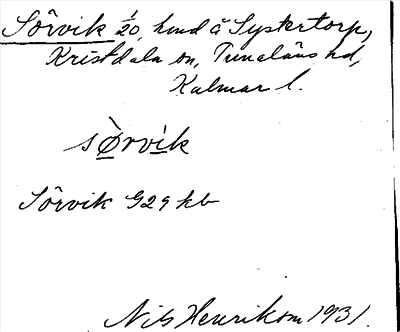 Sörvik 1/20, hmd å Systertorp,
Kristdala sn, Tunaläns hd,
Kalmar l.
sø̀rvìk
Sörvik G29 kb
Nils Henrikson 1931.